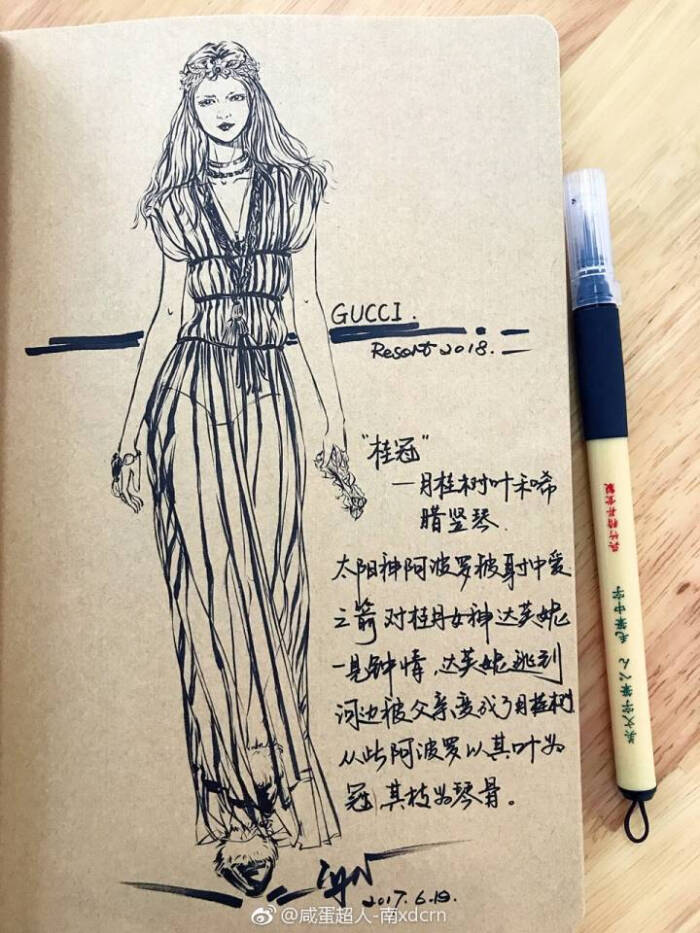 GUCCI.
Resort 2018.
“桂冠”
—月桂树叶和唏
腊竖琴.
太阳神阿波罗被射中爱
之箭 对桂月女神达芙妮
一見钟情,达芙妮逃到
河边被父亲变成了月桂树
从此阿波罗以其叶为
冠 其枝为琴骨。
2017.6.19.
呉竹精昇堂製
美文字筆ぺん 毛筆中字
@咸蛋超人-南xdcrn